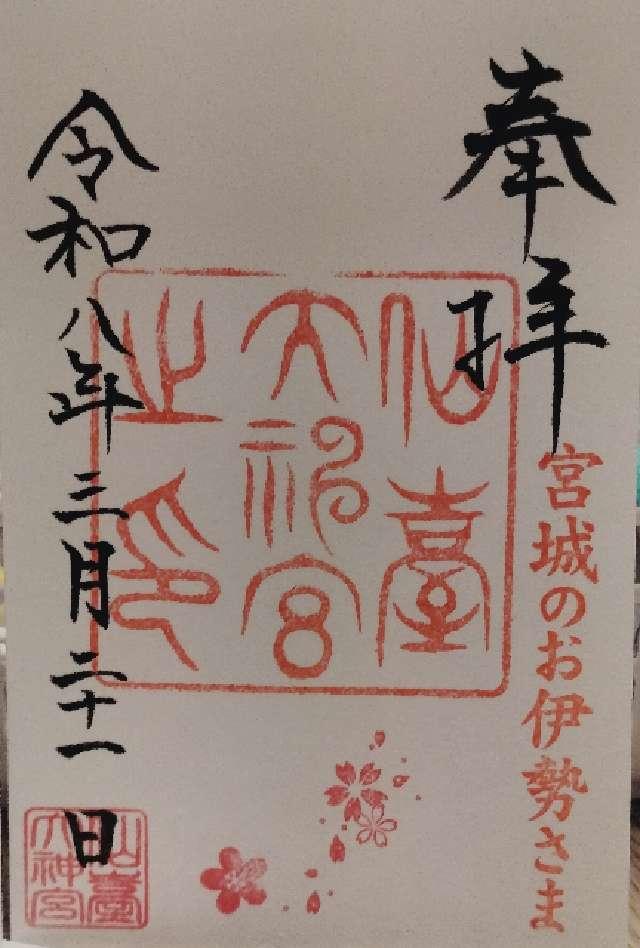 奉拝
宮城のお伊勢さま
仙臺
大神宮
之印
令和八年三月二十一日
仙臺
大神宮